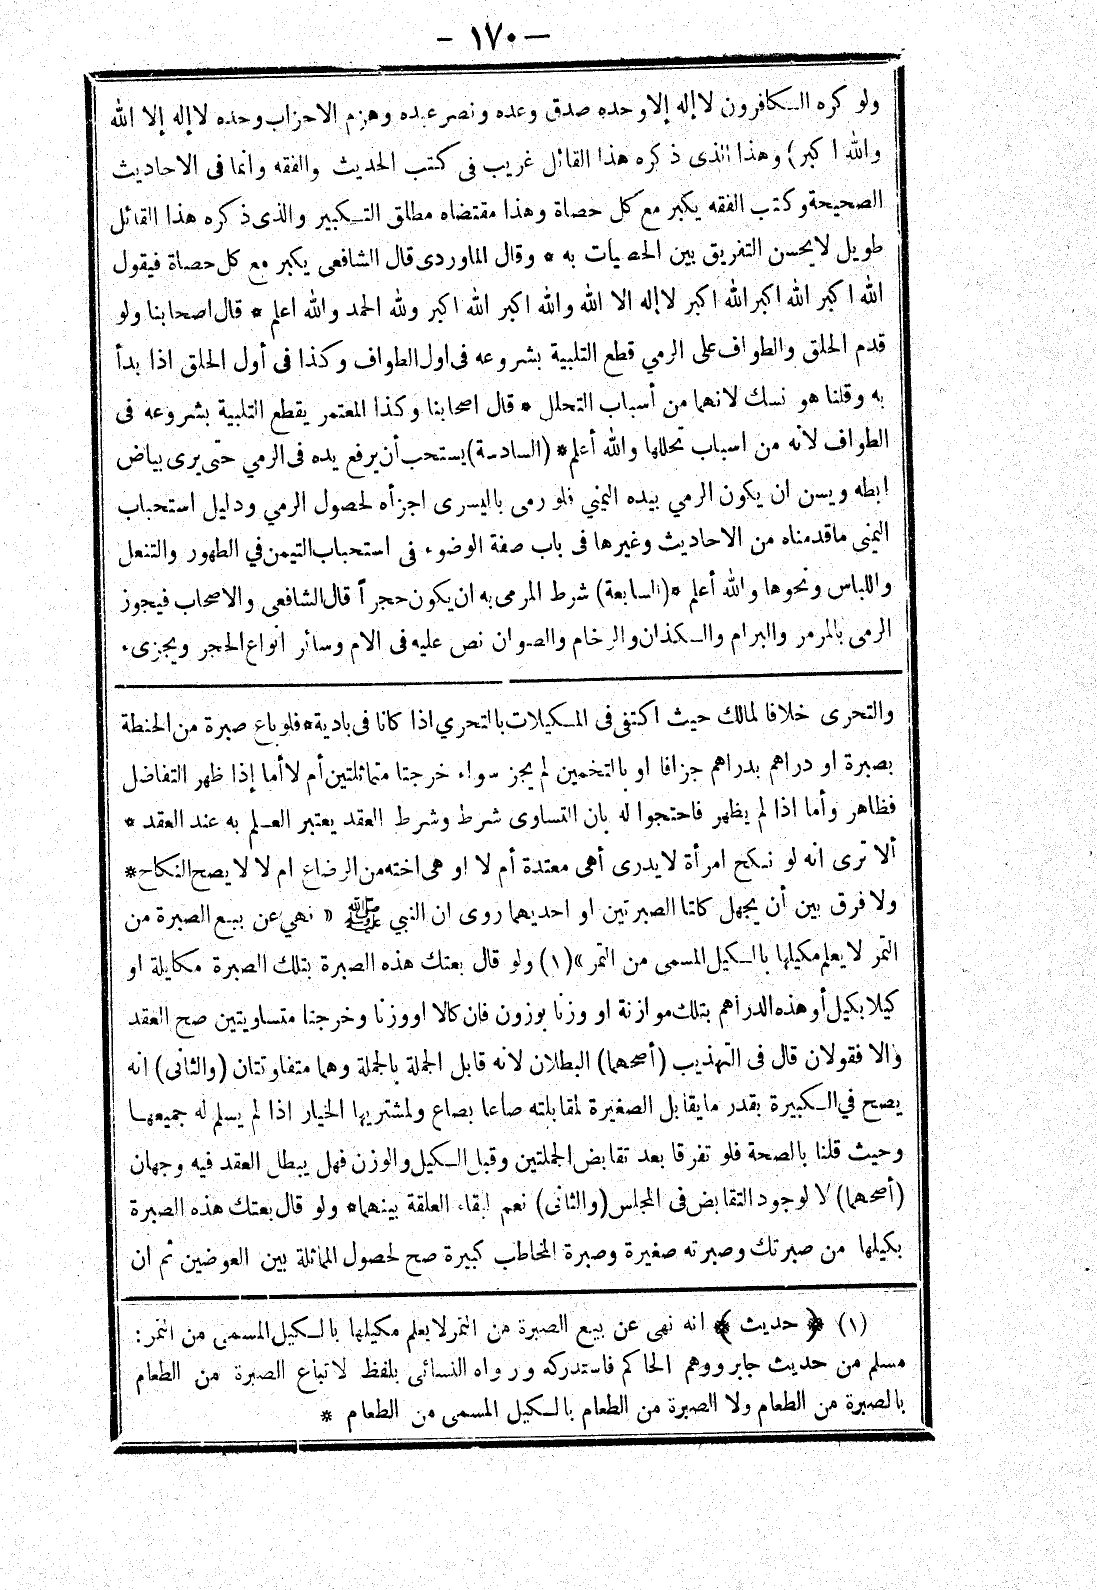 — ١٧٠ —
ولو كره الكافرون لا إله إلا وحده صدق وعده ونصر عبده وهزم الاحزاب وحده لا إله إلا الله
والله اكبر) وهذا الذى ذكره هذا القائل غريب فى كتب الحديث والفقه وانما فى الاحاديث
الصحيحة وكتب الفقه يكبر مع كل حصاة وهذا مقتضاه مطلق التكبير والذى ذكره هذا القائل
طويل لا يحسن التفريق بين الحصيات به * وقال الماوردى قال الشافعى يكبر مع كل حصاة فيقول
الله اكبر الله اكبر الله اكبر لا إله الا الله والله اكبر الله اكبر ولله الحمد والله اعلم * قال اصحابنا ولو
قدم الحلق والطواف على الرمي قطع التلبية بشروعه فى اول الطواف وكذا فى أول الحلق اذا بدأ
به وقلنا هو نسك لانهما من أسباب التحلل * قال اصحابنا وكذا المعتمر يقطع التلبية بشروعه فى
الطواف لانه من اسباب تحللها والله أعلم * (السادسة) يستحب أن يرفع يده فى الرمي حتى يرى بياض
ابطه ويسن ان يكون الرمي بيده اليمني فلو رمى باليسرى اجزأه لحصول الرمي ودليل استحباب
اليمنى ما قدمناه من الاحاديث وغيرها فى باب صفة الوضوء فى استحباب التيمن في الطهور والتنعل
واللباس ونحوها والله أعلم * (السابعة) شرط المرمى به ان يكون حجراً قال الشافعى والاصحاب فيجوز
الرمى بالمرمر والبرام والكذان والرخام والصوان نص عليه فى الام وسائر انواع الحجر ويجزىء
والتحرى خلافا لمالك حيث اكتفى فى المكيلات بالتحري اذا كانا فى بادية * فلو باع صبرة من الحنطة
بصبرة او دراهم بدراهم جزافا او بالتخمين لم يجز سواء خرجتا متماثلتين أم لا أما إذا ظهر التفاضل
فظاهر وأما اذا لم يظهر فاحتجوا له بان التساوى شرط وشرط العقد يعتبر العلم به عند العقد *
ألا ترى انه لو نكح امرأة لا يدرى أهى معتدة أم لا او هى اخته من الرضاع ام لا لا يصح النكاح *
ولا فرق بين أن يجهل كلتا الصبرتين او احديهما روى ان النبي ﷺ « نهي عن بيع الصبرة من
التمر لا يعلم مكيلها بالكيل المسمى من التمر » (١) ولو قال بعتك هذه الصبرة بتلك الصبرة مكايلة او
كيلا بكيل أو هذه الدراهم بتلك موازنة او وزنا بوزون فان كالا اووزنا وخرجتا متساويتين صح العقد
والا فقولان قال فى التهذيب (أصحهما) البطلان لانه قابل الجملة بالجملة وهما متفاوتتان (والثانى) انه
يصح في الكبيرة بقدر ما يقابل الصغيرة لمقابلته صاعا بصاع ولمشتريها الخيار اذا لم يسلم له جميعها
وحيث قلنا بالصحة فلو تفرقا بعد تقابض الجملتين وقبل الكيل والوزن فهل يبطل العقد فيه وجهان
(أصحهما) لا لوجود التقابض فى المجلس (والثانى) نعم لبقاء العلقة بينهما * ولو قال بعتك هذه الصبرة
بكيلها من صبرتك وصبرته صغيرة وصبرة المخاطب كبيرة صح لحصول المماثلة بين العوضين ثم ان
(١) * ﴿ حديث ﴾ * انه نهى عن بيع الصبرة من التمر لا يعلم مكيلها بالكيل المسمى من التمر :
مسلم من حديث جابر ووهم الحاكم فاستدركه ورواه النسائى بلفظ لا تباع الصبرة من الطعام
بالصبرة من الطعام ولا الصبرة من الطعام بالكيل المسمى من الطعام *